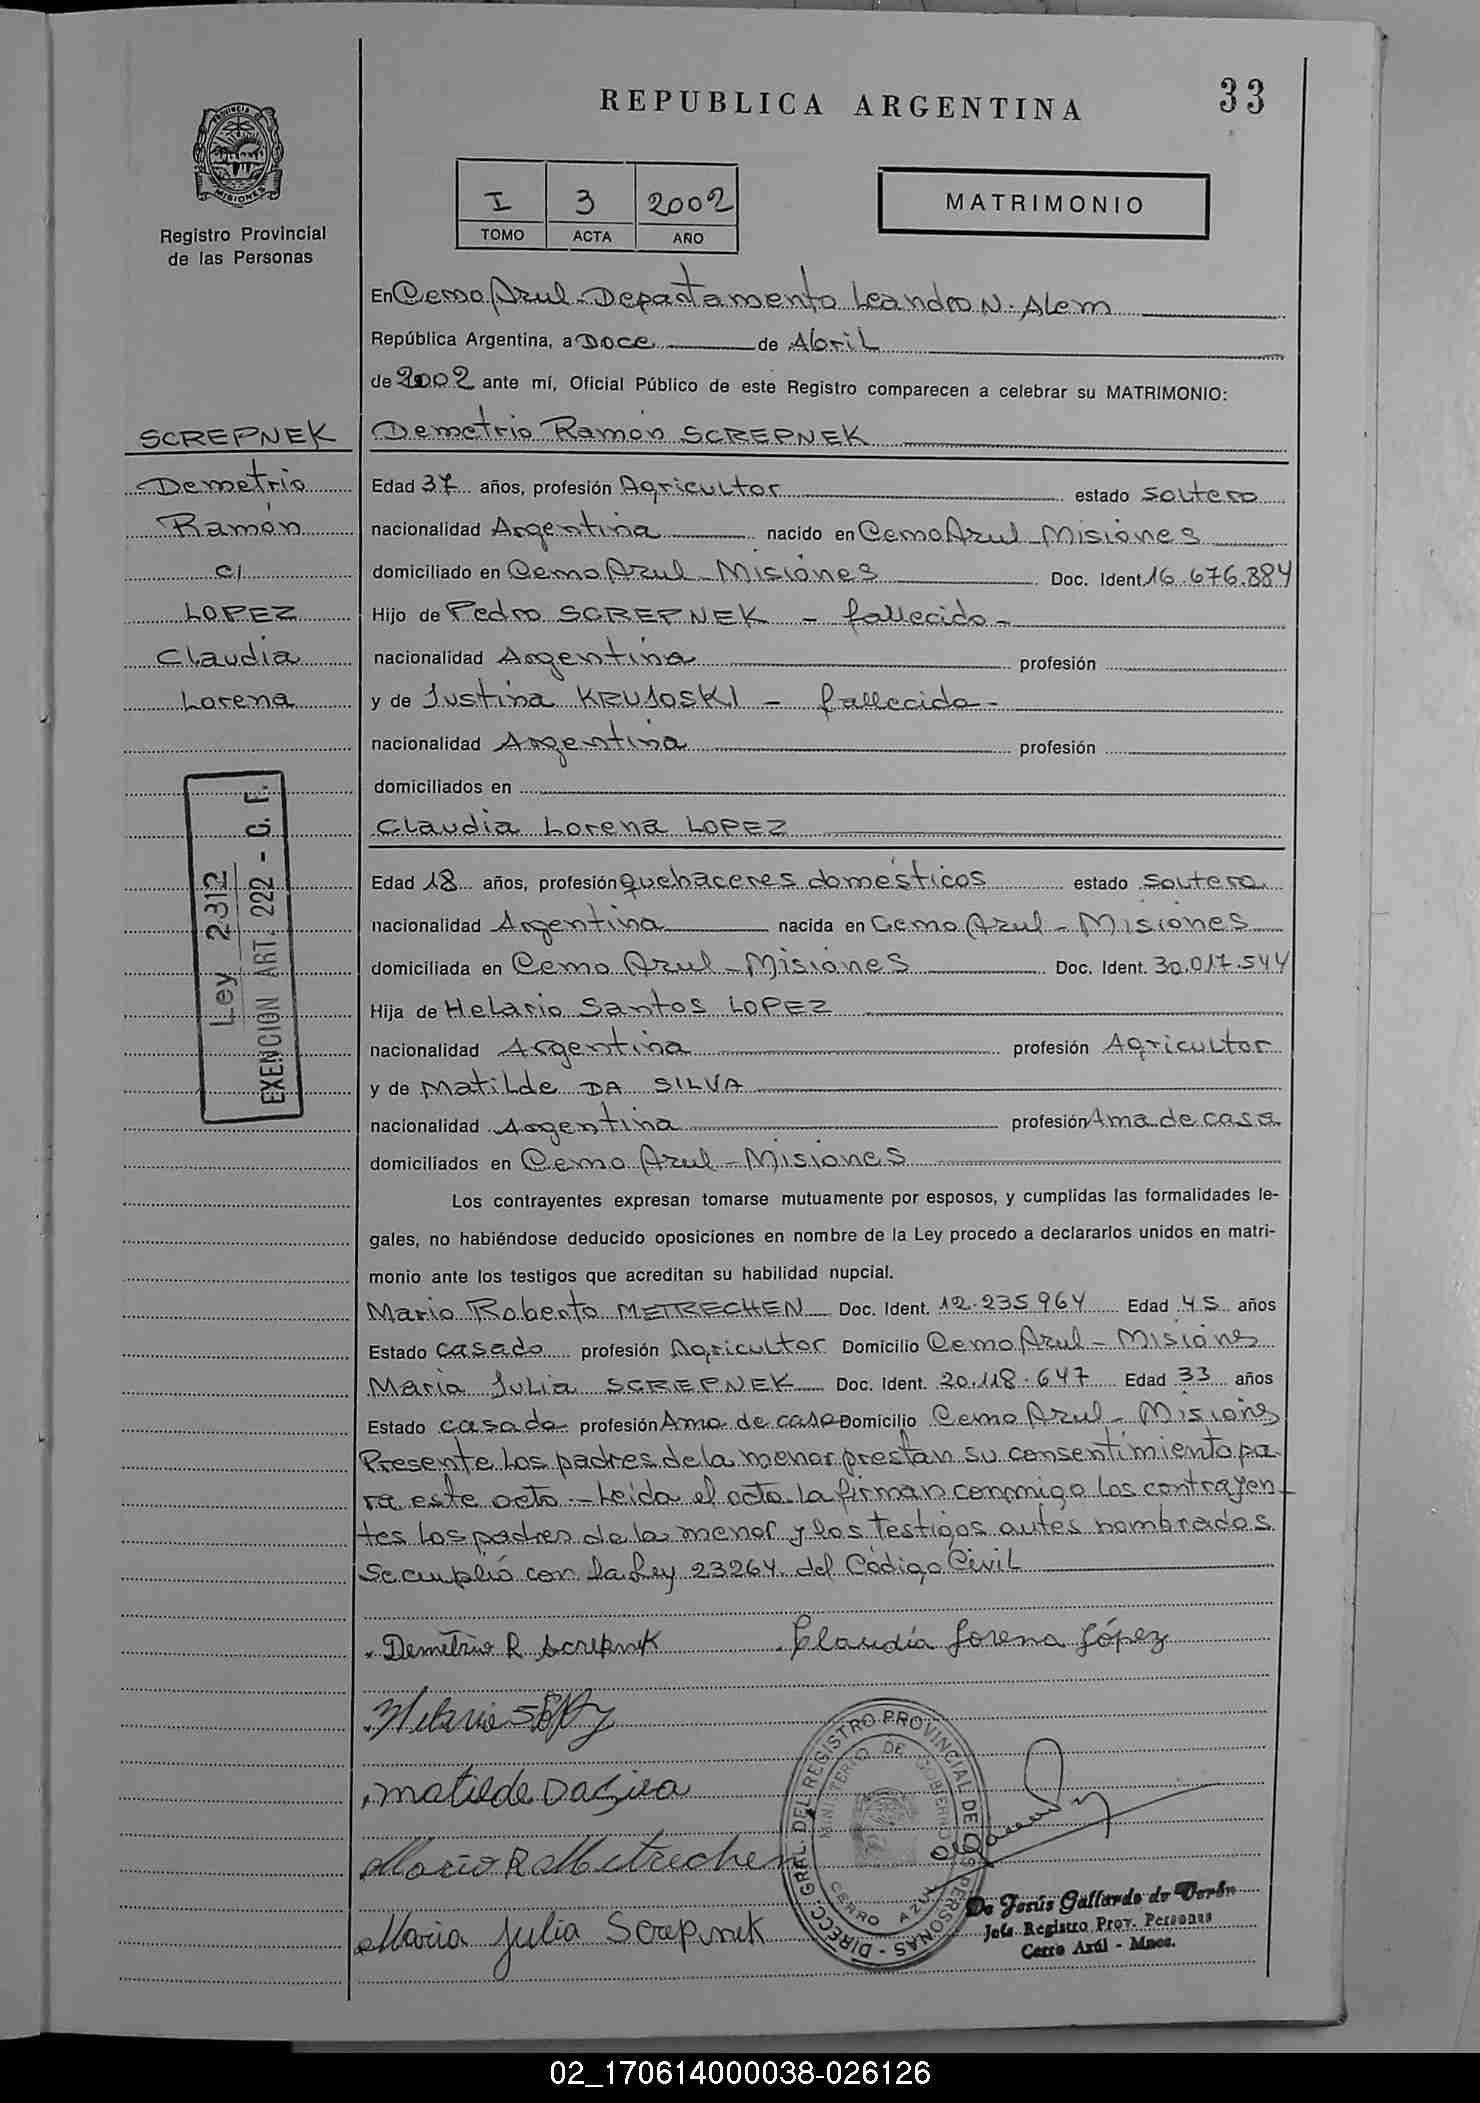 REPUBLICA ARGENTINA
33
PROVINCIA DE MISIONES
Registro Provincial
de las Personas
I 3 2002
TOMO ACTA AÑO
MATRIMONIO
En Cerro Azul - Departamento Leandro N. Alem
República Argentina, a Doce de Abril
de 2002 ante mí, Oficial Público de este Registro comparecen a celebrar su MATRIMONIO:
SCREPNEK
Demetrio
Ramón
c/
LOPEZ
Claudia
Lorena
Ley 2312
EXENCION ART. 222 - C. F.
Demetrio Ramón SCREPNEK
Edad 37 años, profesión Agricultor estado soltero
nacionalidad Argentina nacido en Cerro Azul Misiones
domiciliado en Cerro Azul - Misiones Doc. Ident. 16.676.884
Hijo de Pedro SCREPNEK - fallecido -
nacionalidad Argentina profesión
y de Justina KRUJOSKI - fallecida -
nacionalidad Argentina profesión
domiciliados en
Claudia Lorena LOPEZ
Edad 18 años, profesión quehaceres domésticos estado soltera
nacionalidad Argentina nacida en Cerro Azul - Misiones
domiciliada en Cerro Azul - Misiones Doc. Ident. 30.017.544
Hija de Helario Santos LOPEZ
nacionalidad Argentina profesión Agricultor
y de Matilde DA SILVA
nacionalidad Argentina profesión Ama de casa
domiciliados en Cerro Azul - Misiones
Los contrayentes expresan tomarse mutuamente por esposos, y cumplidas las formalidades le-
gales, no habiéndose deducido oposiciones en nombre de la Ley procedo a declararlos unidos en matri-
monio ante los testigos que acreditan su habilidad nupcial.
Mario Roberto METRECHEN Doc. Ident. 12.235.964 Edad 45 años
Estado casado profesión Agricultor Domicilio Cerro Azul - Misiones
Maria Julia SCREPNEK Doc. Ident. 20.118.647 Edad 33 años
Estado casada profesión Ama de casa Domicilio Cerro Azul - Misiones
Presente los padres de la menor prestan su consentimiento pa-
ra este acto - Leida el acta la firman conmigo los contrayen-
tes los padres de la menor y los testigos antes nombrados
Se cumplió con la Ley 23264 del Código Civil
Demetrio R Screpnek Claudia Lorena López
Helario S López
Matilde Da Silva
Mario R Metrechen
Maria Julia Screpnek
DIRECC. GRAL. DEL REGISTRO PROVINCIAL DE LAS PERSONAS -
MINISTERIO DE GOBIERNO
CERRO AZUL
De Jesús Gallardo de Verón
Jefe Registro Prov. Personas
Cerro Azúl - Mnes.
02_170614000038-026126